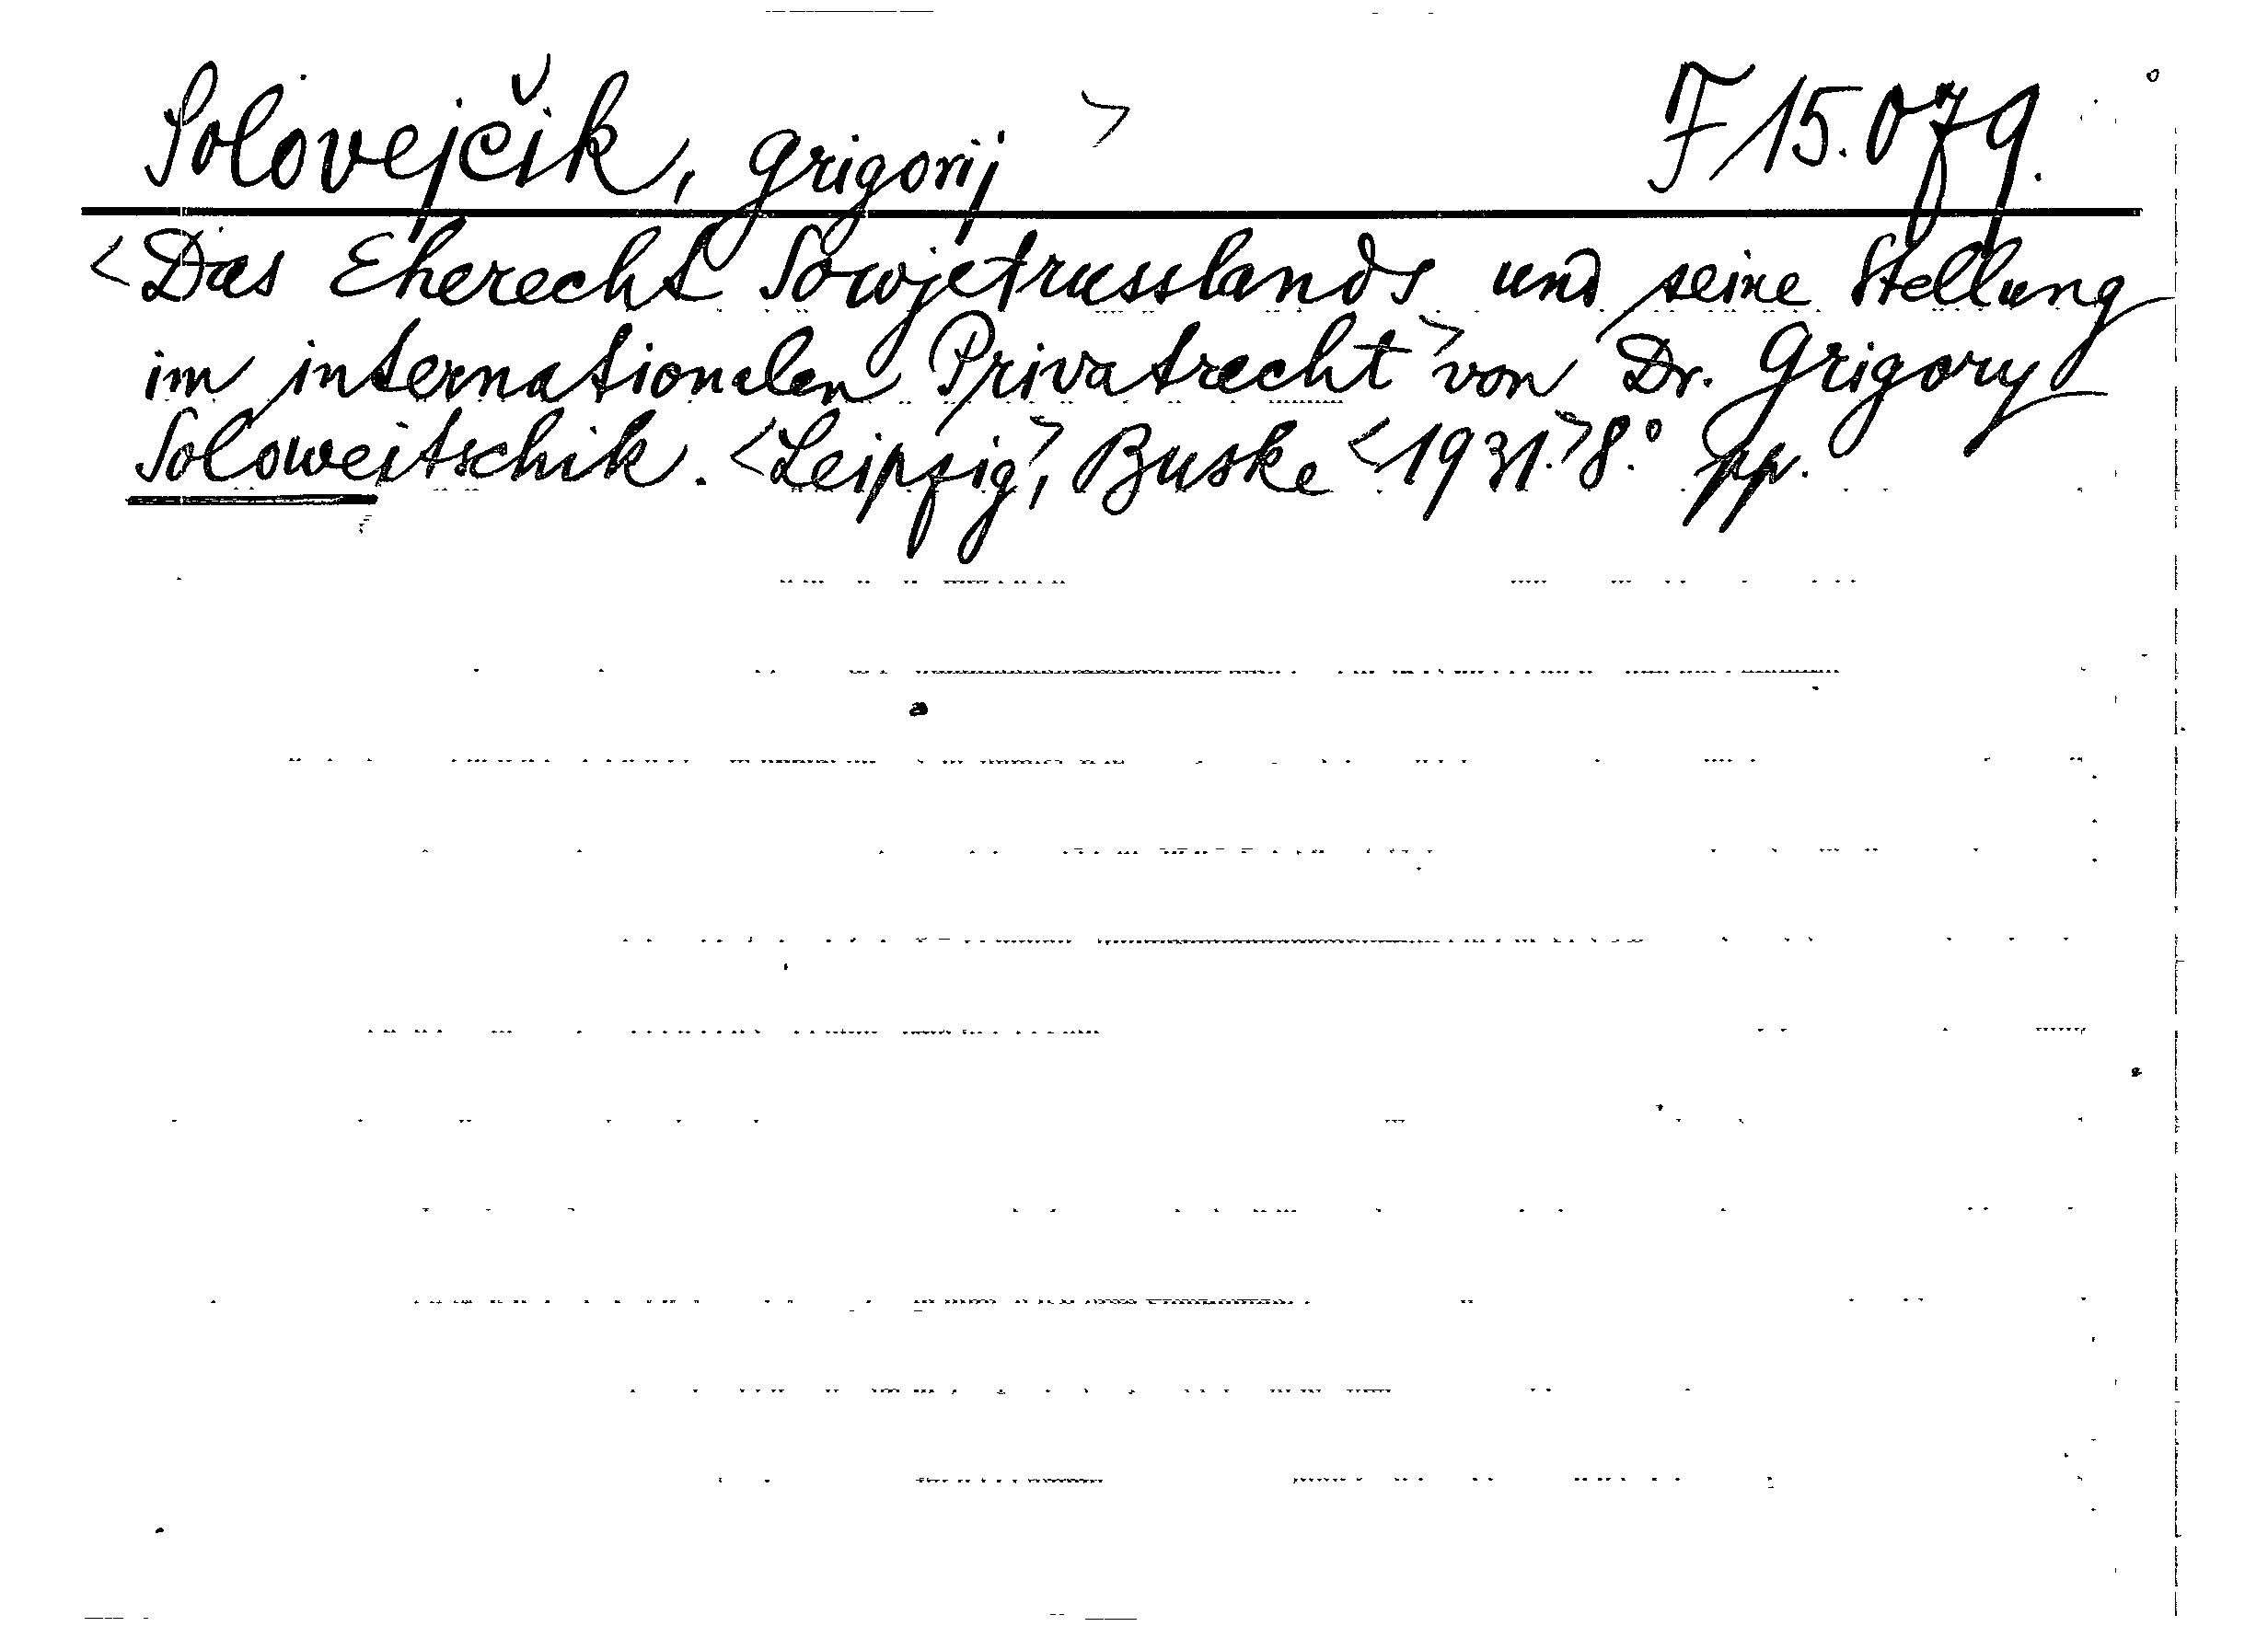 Solovejčik, Grigorij > F 15.079.
<Das Eherecht Sowjetrusslands und seine Stellung
im internationalen Privatrecht> von Dr. Grigory
Soloweitschik. <Leipzig>, Buske <1931.> 8.° pp.